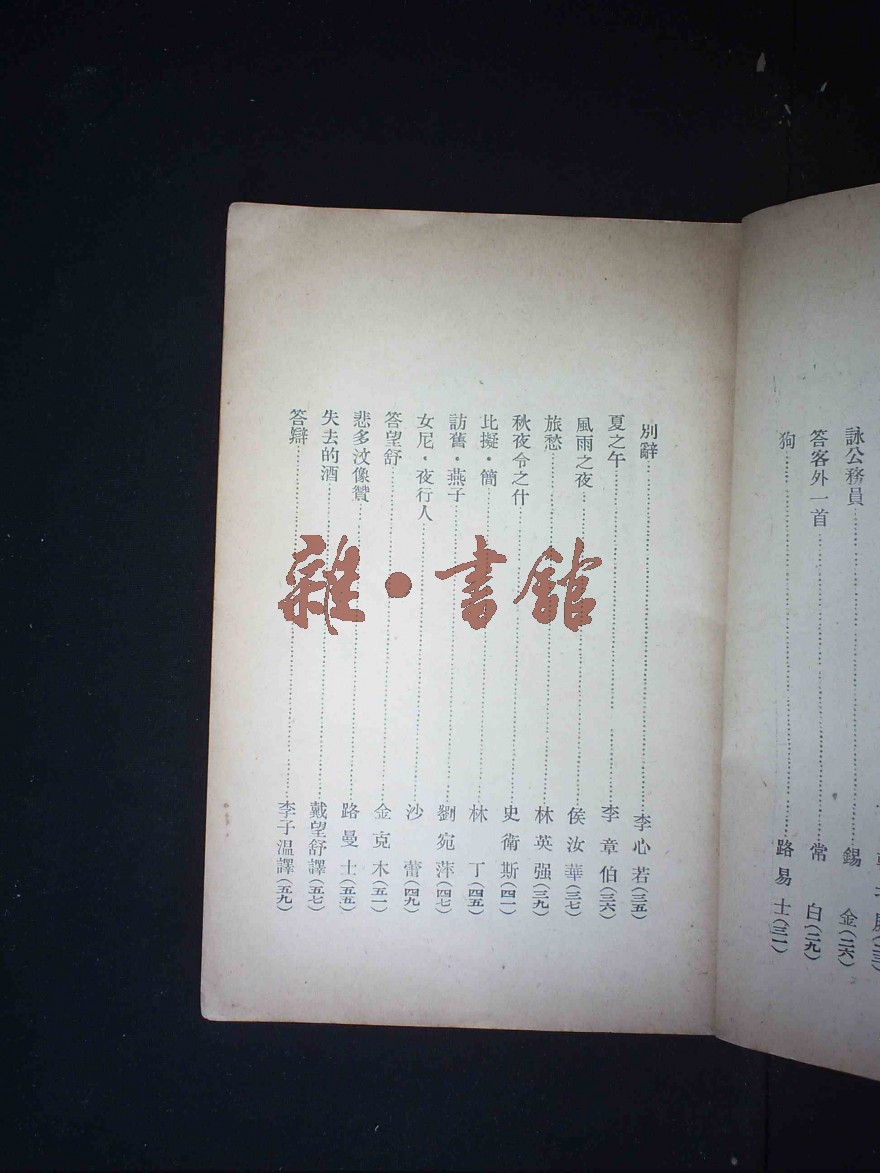 詠公務員……錫金(二六)
答客外一首……常白(二九)
狗……路易士(三一)
別辭……李心若(三五)
夏之午……李章伯(三六)
風雨之夜……侯汝華(三七)
旅愁……林英强(三九)
秋夜令之什……史衛斯(四一)
比擬·簡……林丁(四五)
訪舊·燕子……劉宛萍(四七)
女尼·夜行人……沙蕾(四九)
答望舒……金克木(五一)
悲多汶像贊……路曼士(五五)
失去的酒……戴望舒譯(五七)
答辯……李子温譯(五九)
雜·書館